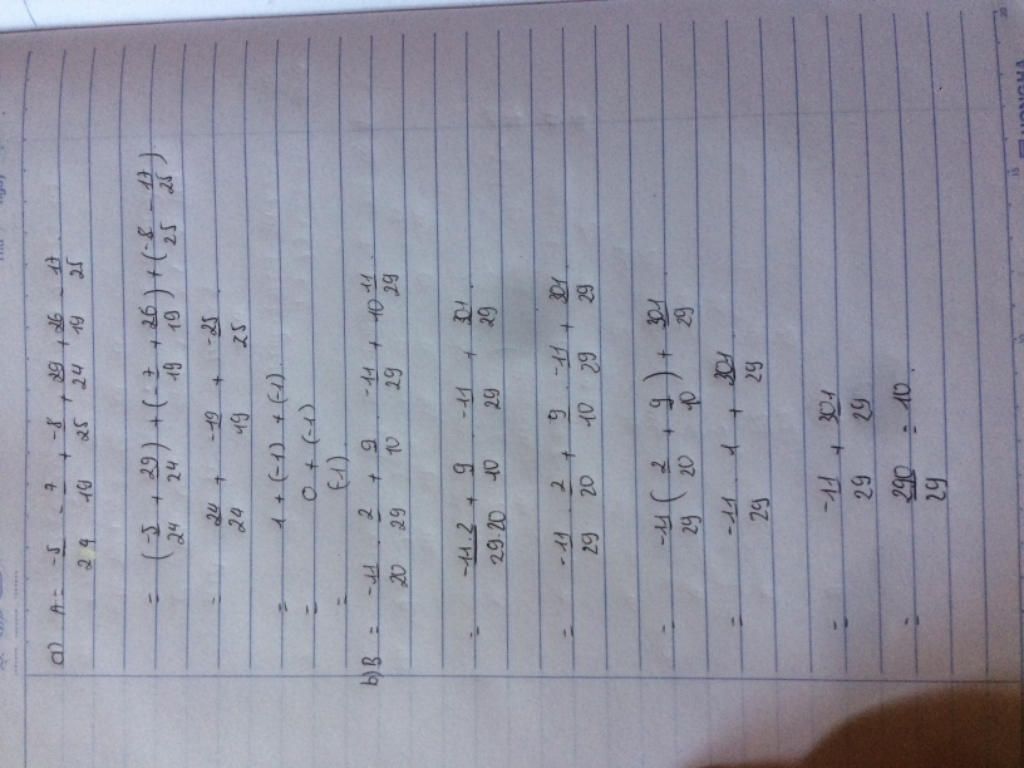 a) A = -5/24 - 7/19 + -8/25 + 29/24 + 26/19 - 17/25
= (-5/24 + 29/24) + (-7/19 + 26/19) + (-8/25 - 17/25)
= 24/24 + -19/19 + -25/25
= 1 + (-1) + (-1)
= 0 + (-1)
= (-1)
b) B = -11/20 . 2/29 + 9/10 . -11/29 + 10 11/29
= -11.2/29.20 + 9/10 . -11/29 + 301/29
= -11/29 . 2/20 + 9/10 . -11/29 + 301/29
= -11/29 (2/20 + 9/10) + 301/29
= -11/29 . 1 + 301/29
= -11/29 + 301/29
= 290/29 = 10.